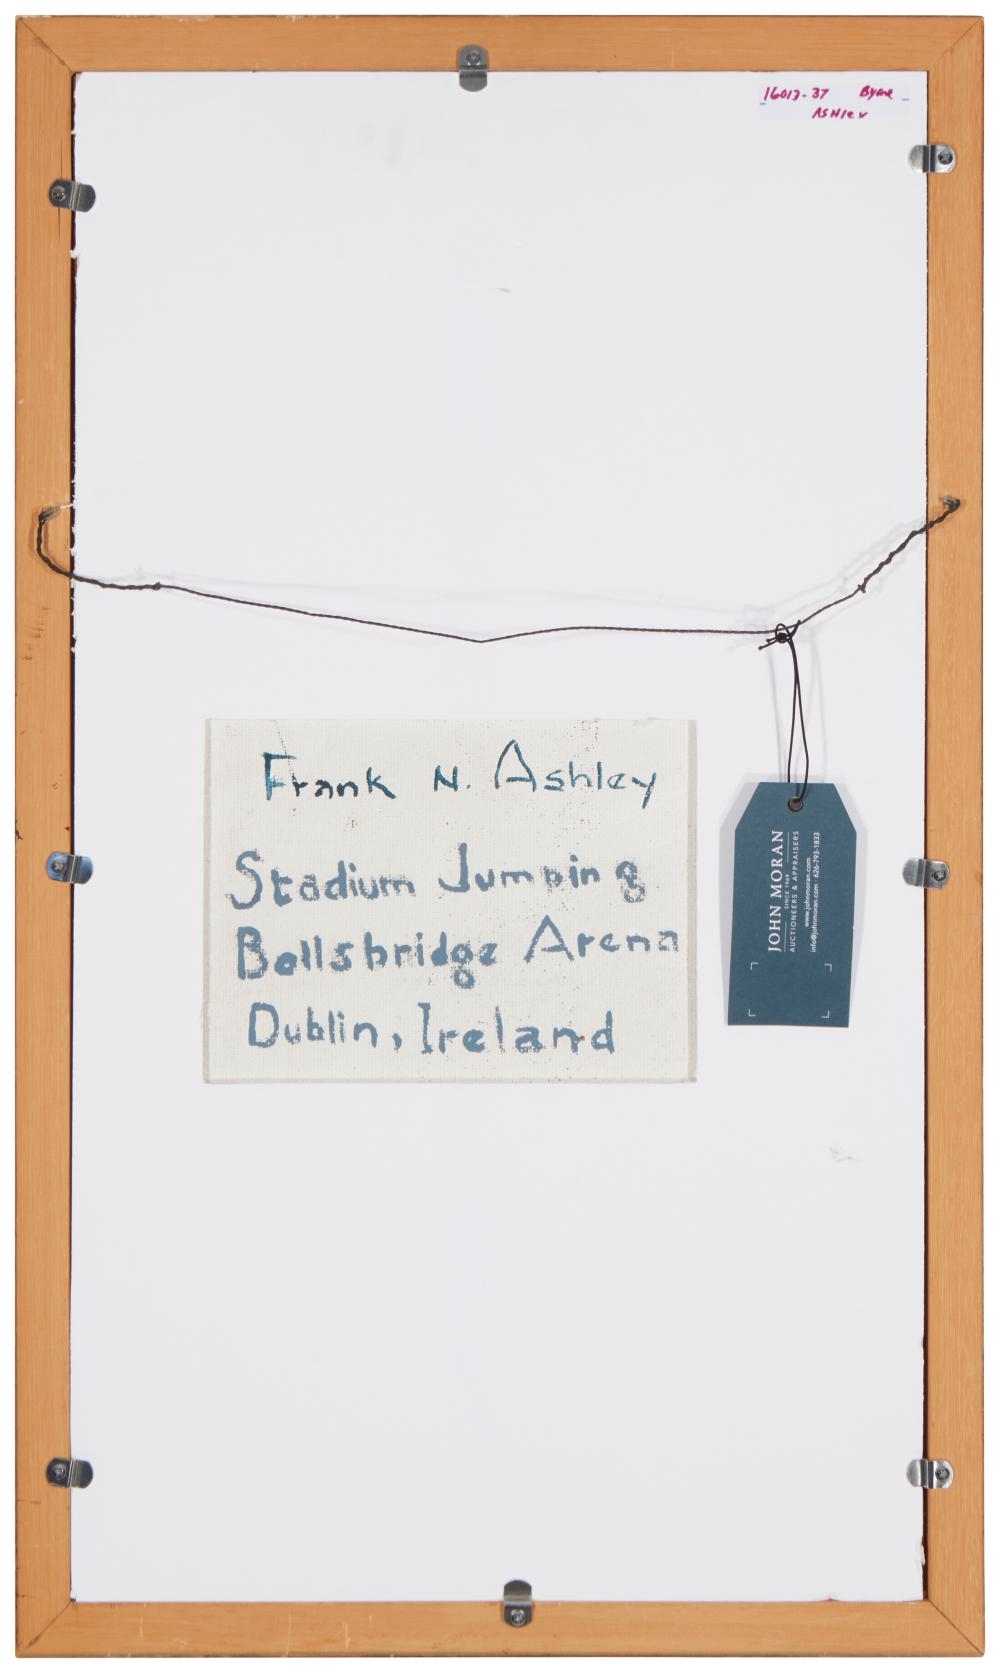 16013-37 Byrne
Ashley
Frank N. Ashley
Stadium Jumping
Ballsbridge Arena
Dublin, Ireland
JOHN MORAN
SINCE 1969
AUCTIONEERS & APPRAISERS
www.johnmoran.com
info@johnmoran.com · 626-793-1833